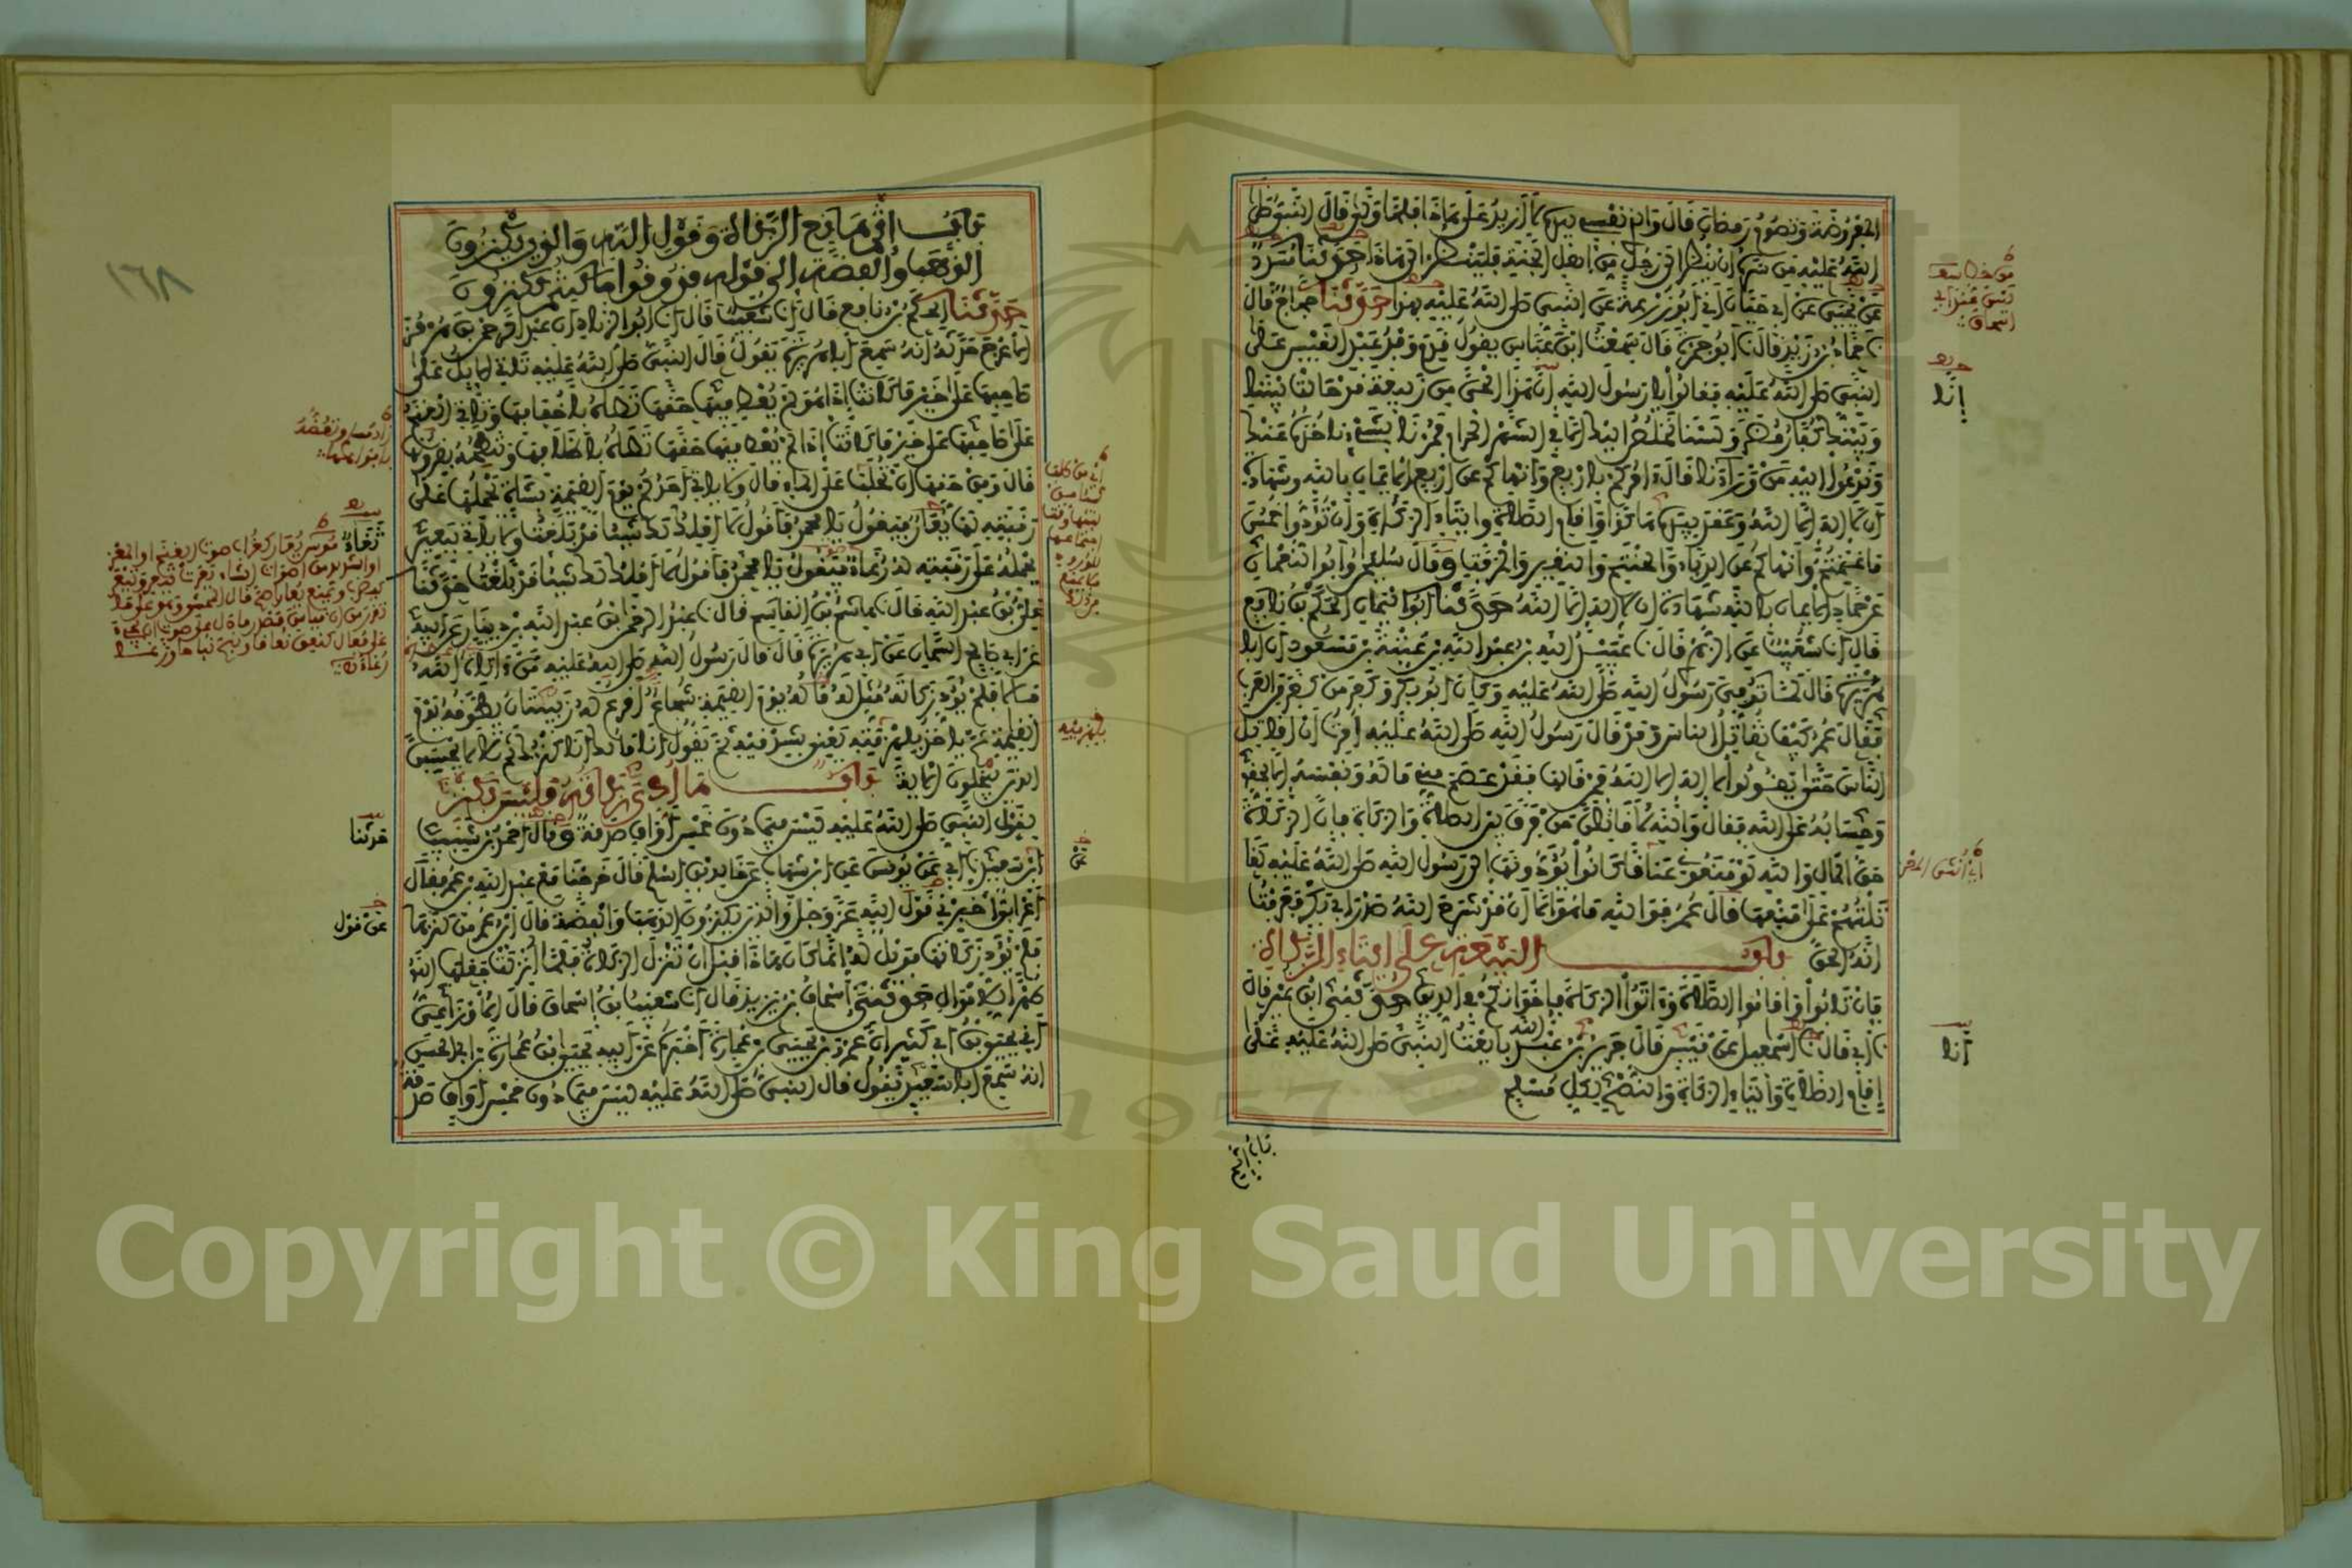 المفروضة وتصوم رمضان قال والذي نفسي بيده لا أزيد على هذا فلما ولى قال النبي صلى
الله عليه من سره أن ينظر إلى رجل من أهل الجنة فلينظر إلى هذا حدثنا مسدد
عن يحيى عن أبي حيان أني أبو زرعة عن النبي صلى الله عليه بهذا حدثنا حجاج قال
نا حماد بن زيد قال نا أبو جمرة قال سمعت ابن عباس يقول قدم وفد عبد القيس على
النبي صلى الله عليه فقالوا يا رسول الله إن هذا الحي من ربيعة قد حالت بيننا
وبينك كفار مضر ولسنا نخلص إليك إلا في الشهر الحرام فمرنا بشيء نأخذه عنك
وندعوا إليه من وراءنا قال آمركم بأربع وأنهاكم عن أربع الإيمان بالله وشهادة
أن لا إله إلا الله وعقد بيده هكذا وإقام الصلاة وإيتاء الزكاة وأن تؤدوا خمس
ما غنمتم وأنهاكم عن الدباء والحنتم والنقير والمزفت وقال سليمان وأبو النعمان
عن حماد الإيمان بالله شهادة أن لا إله إلا الله حدثنا أبو اليمان الحكم بن نافع
قال أنا شعيب عن الزهري قال نا عبيد الله بن عبد الله بن عتبة بن مسعود أن أبا
هريرة قال لما توفي رسول الله صلى الله عليه وكان أبو بكر وكفر من كفر من العرب
فقال عمر كيف نقاتل الناس وقد قال رسول الله صلى الله عليه أمرت أن أقاتل
الناس حتى يقولوا لا إله إلا الله فمن قالها فقد عصم مني ماله ونفسه إلا بحقه
وحسابه على الله فقال والله لأقاتلن من فرق بين الصلاة والزكاة فإن الزكاة
حق المال والله لو منعوني عناقا كانوا يؤدونها إلى رسول الله صلى الله عليه لقا
تلتهم على منعها قال عمر فوالله ما هو إلا أن قد شرح الله صدر أبي بكر فعرفت
أنه الحق باب البيعة على إيتاء الزكاة
فإن تابوا وأقاموا الصلاة وآتوا الزكاة فإخوانكم في الدين حدثني ابن نمير قال
نا أبي قال نا إسمعيل عن قيس قال جرير بن عبد الله بايعت النبي صلى الله عليه على
إقام الصلاة وإيتاء الزكاة والنصح لكل مسلم
إنا
أنا
باب إثم
باب إثم مانع الزكاة وقول الله والذين يكنزون
الذهب والفضة إلى قوله فذوقوا ما كنتم تكنزون
حدثنا الحكم بن نافع قال أنا شعيب قال أنا أبو الزناد أن عبد الرحمن بن هرمز
الأعرج حدثه أنه سمع أبا هريرة يقول قال النبي صلى الله عليه تأتي الإبل على
صاحبها على خير ما كانت إذا هو لم يعط فيها حقها تطأه بأخفافها وتأتي الغنم
على صاحبها على خير ما كانت إذا لم يعط فيها حقها تطأه بأظلافها وتنطحه بقرونها
قال ومن حقها أن تحلب على الماء قال ولا يأتي أحدكم يوم القيمة بشاة يحملها على
رقبته لها يعار فيقول يا محمد فأقول لا أملك لك شيئا قد بلغت ولا يأتي ببعير
يحمله على رقبته له رغاء فيقول يا محمد فأقول لا أملك لك شيئا قد بلغت حدثنا
علي بن عبد الله قال نا هاشم بن القاسم قال نا عبد الرحمن بن عبد الله بن دينار عن أبيه
عن أبي صالح السمان عن أبي هريرة قال قال رسول الله صلى الله عليه من آتاه الله
مالا فلم يؤد زكاته مثل له ماله يوم القيمة شجاعا أقرع له زبيبتان يطوقه يوم
القيمة ثم يأخذ بلهزمتيه يعني بشدقيه ثم يقول أنا مالك أنا كنزك ثم تلا لا يحسبن
الذين يبخلون الآية باب ما أدي زكاته فليس بكنز
لقول النبي صلى الله عليه ليس فيما دون خمس أواق صدقة وقال أحمد بن شبيب
بن سعيد نا أبي عن يونس عن ابن شهاب عن خالد بن أسلم قال خرجنا مع عبد الله بن عمر فقال
أعرابي أخبرني قول الله عز وجل والذين يكنزون الذهب والفضة قال ابن عمر من كنزها
فلم يؤد زكاتها فويل له إنما كان هذا قبل أن تنزل الزكاة فلما أنزلت جعلها الله
طهرا للأموال حدثني إسحاق بن يزيد قال أنا شعيب بن إسحاق قال الأوزاعي
أني يحيى بن أبي كثير أن عمرو بن يحيى بن عمارة أخبره عن أبيه يحيى بن عمارة بن أبي الحسن
أنه سمع أبا سعيد يقول قال النبي صلى الله عليه ليس فيما دون خمس أواق صدقة
بلهزمتيه
عن
حدثنا
عن قول
١٦٨
Copyright © King Saud University
1957